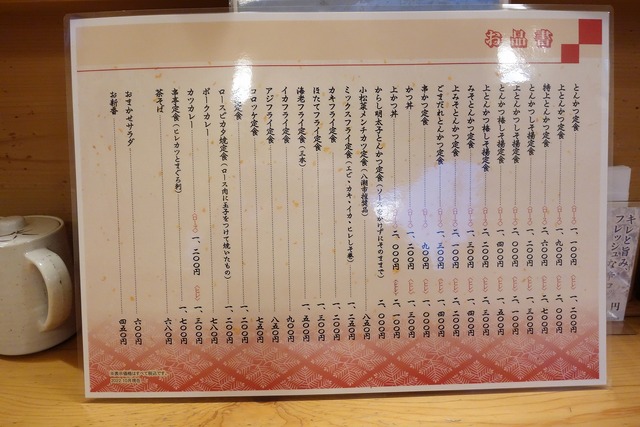 お品書
とんかつ定食 (ロース) 一、一〇〇円 (ヒレ) 一、二〇〇円
上とんかつ定食 一、九〇〇円 二、〇〇〇円
特上とんかつ定食 二、六〇〇円 二、七〇〇円
とんかつしそ揚定食 一、二〇〇円 一、三〇〇円
上とんかつしそ揚定食 二、〇〇〇円 二、一〇〇円
上とんかつ梅しそ揚定食 一、四〇〇円 一、五〇〇円
上とんかつ梅しそ揚定食 二、二〇〇円 二、三〇〇円
みそとんかつ定食 一、三〇〇円 一、四〇〇円
上みそとんかつ定食 二、一〇〇円
ごまだれとんかつ定食 一、三〇〇円 一、四〇〇円
串かつ定食 九〇〇円 一、〇〇〇円
かつ丼 一、二〇〇円
上かつ丼 二、〇〇〇円 二、一〇〇円
からし明太子とんかつ定食(ソースをかけずにそのままで) 二、〇〇〇円
小松菜メンチカツ定食(八潮市推奨品) 八五〇円
ミックスフライ定食(エビ・カキ・イカ・ヒレしそ巻) 一、二五〇円
カキフライ定食 一、二〇〇円
ほたてフライ定食 一、三〇〇円
海老フライ定食(三本) 一、五〇〇円
イカフライ定食 九〇〇円
アジフライ定食 八五〇円
コロッケ定食 七五〇円
定食 一、二〇〇円
ロースピカタ焼定食(ロース肉に玉子をつけて焼いたもの) 一、二〇〇円
ポークカレー 七八〇円
カツカレー (ロース) 一、二〇〇円 (ヒレ) 一、三〇〇円
串本定食(ヒレカツとまぐろ刺) 一、七〇〇円
茶そば 六八〇円
おまかせサラダ 六〇〇円
お新香 四五〇円
※表示価格はすべて税込です。
2022.10月現在
キレと旨み
フレッシュな
円